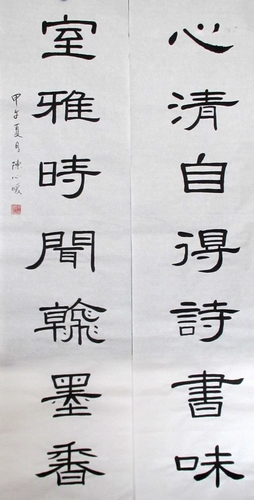 心清自得詩書味
室雅時聞翰墨香
甲午夏月